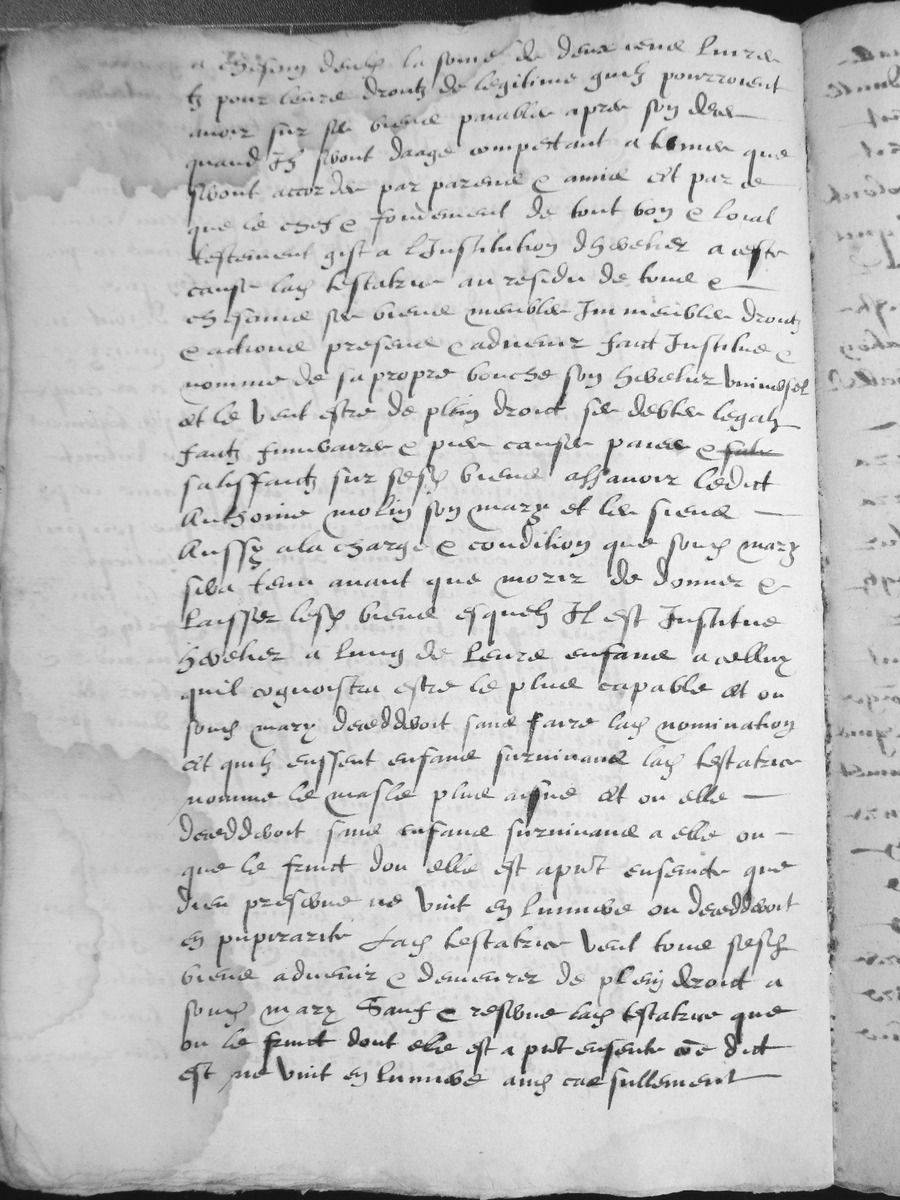 a chescun deulx la some de deux cens livres
tz pour leurs droitz de legitime quilz pourroient
avoir sur ses biens paiables apres son deces
quand Ilz seront daage competant a termes que
seront accordes par parens & amis et par ce
que le chef & fondement de tout bon & loial
testement gist a l Institution dheretier a ceste
cause lad testatrice au residu de tous &
chescuns ses biens meubles Immeubles droitz
& actions presens & advenir faict Institue &
nomme de sa propre bouche son heretier universel
et le veut estre de plein droict ses debtes legatz
faitz funeraires & pies causes paies &
satisffaitz sur sesd biens assavoir ledict
Anthoine molin son mary et les siens
Aussy a la charge & condition que sond mary
sera tenu avant que morir de donner &
Laisser lesd biens esquelz Il est Institue
heretier a lung de leurs enfans a celluy
quil cognoistra estre le plus capable et ou
sond mary decedderoit sans faire lad nomination
et quilz eussent enfans survivans lad testatrice
nomme le masle plus aisne et ou elle
decedderoit sans enfans survivans a elle ou
que le fruict don elle est a pnt enseincte que
dieu preserve ne vint en lumiere ou decedderoit
en pupirarite Lad testatrice veut tous sesd
biens advenir & demeurer de plein droict a
sond mary Sauf & reserve lad testatrice que
ou le fruict dont elle est a pnt enseinte ce dict
est ne vint en lumiere aud cas sullement